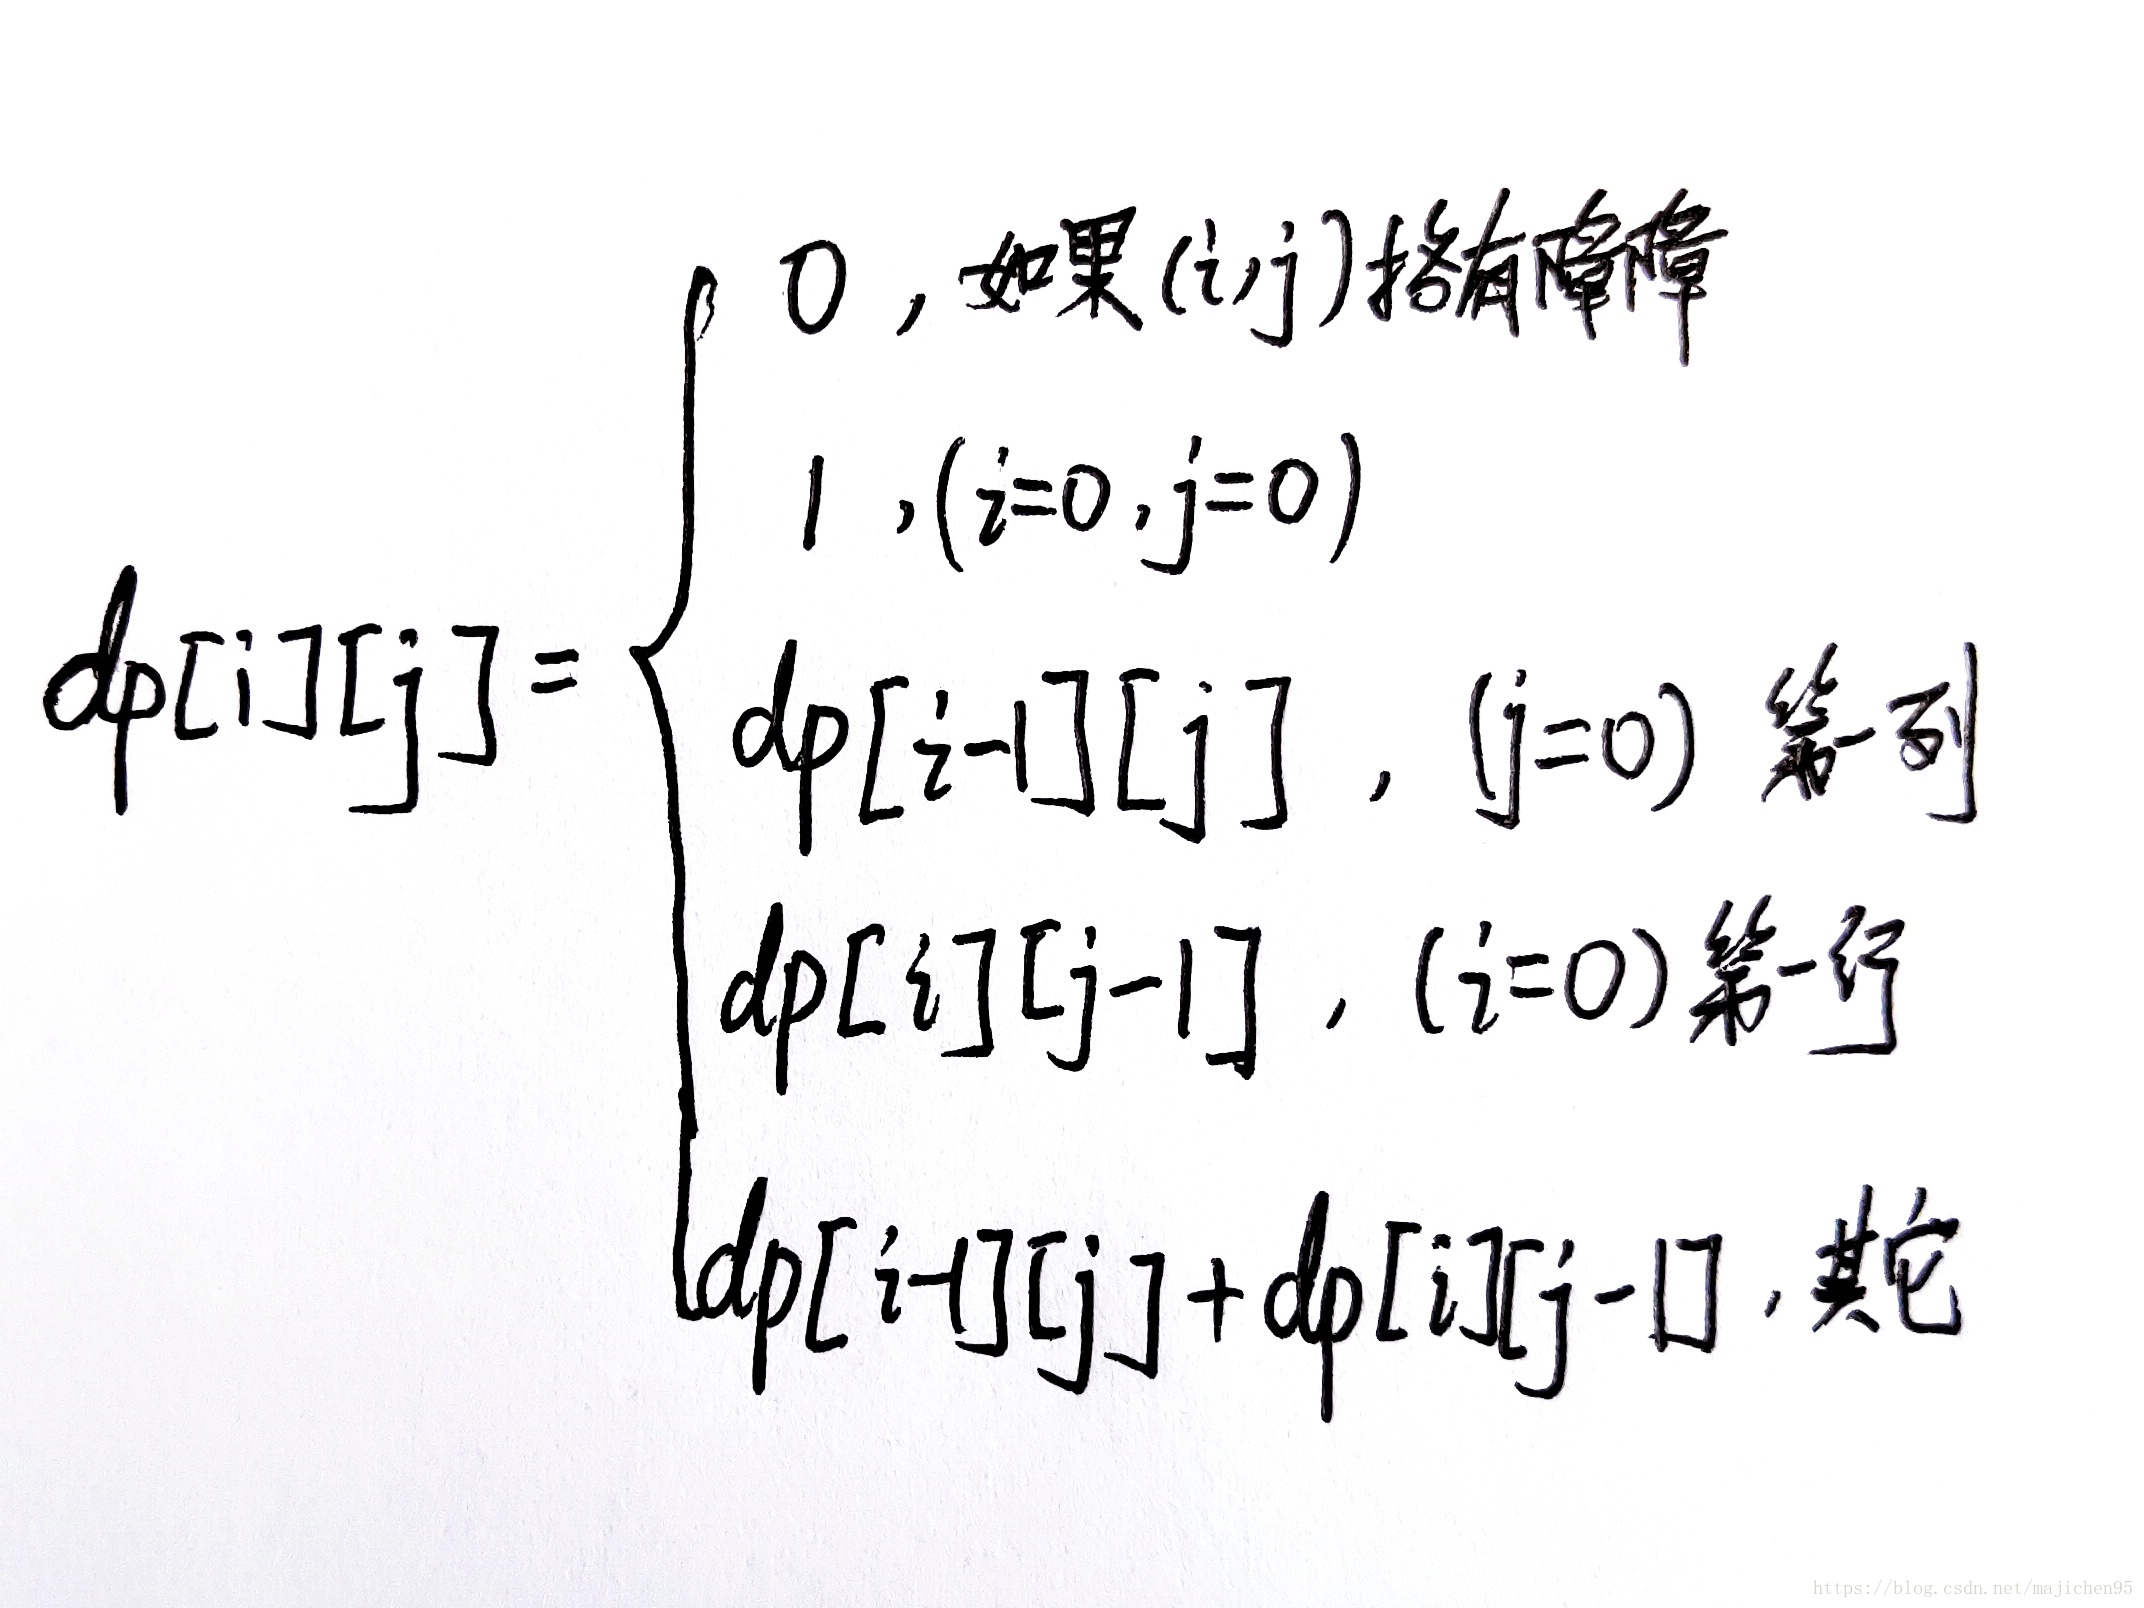 0 , 如果(i,j)格有障障
1 , (i=0,j=0)
dp[i][j]=
dp[i-1][j] , (j=0) 第一列
dp[i][j-1] , (i=0)第一行
dp[i-1][j]+dp[i][j-1] , 其它
https://blog.csdn.net/majichen95